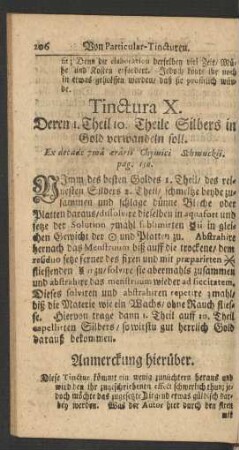 206 Von Particular-Tincturen.
te; Denn die elaboration derselben viel Zeit/ Mü-
he und Kosten erfordert. Jedoch könte ihr noch
in etwas geholffen werden/ daß sie profitabler wür-
de.
Tinctura X.
Deren 1. Theil 10. Theile Silbers in
Gold verwandeln soll.
Ex decade 2mâ ærarii Chymici
pag. 158.
NImm des besten Goldes 1. Theil/ des rei-
nesten Silbers 2. Theil/ schmeltze beyde zu-
sammen und schlage dünne Bleche oder
Platten daraus/ dissolvire dieselben in aquafort und
setze der Solution 2mahl sublimirten ☿ in glei-
chen Gewicht der ☉ und Platten zu. Abstrahire
hernach das Menstruum biß auff die trockene/ dem
residuo setze ferner des fixen und mit præparirten
fliessenden zu/ solvire sie abermahls zusammen
und abstrahire das menstruum wieder ad siccitatem,
Dieses solviren und abstrahiren repetire 3mahl/
biß die Materie wie ein Wachs/ ohne Rauch fliesse-
se. Hiervon trage dann 1. Theil auff 10. Theil
capellirten Silbers/ so wirstu gut herrlich Gold
darauß bekommen.
Anmerckung hierüber.
Diese Tinctur kömmt ein wenig nüchtern heraus und
wird den ihr zugeschriebenen effect schwerlich thun/ je-
doch möchte das zugesetzte ☽ und etwas güldisch dar-
bey werden. Was der Autor hier durch den fixen
mit